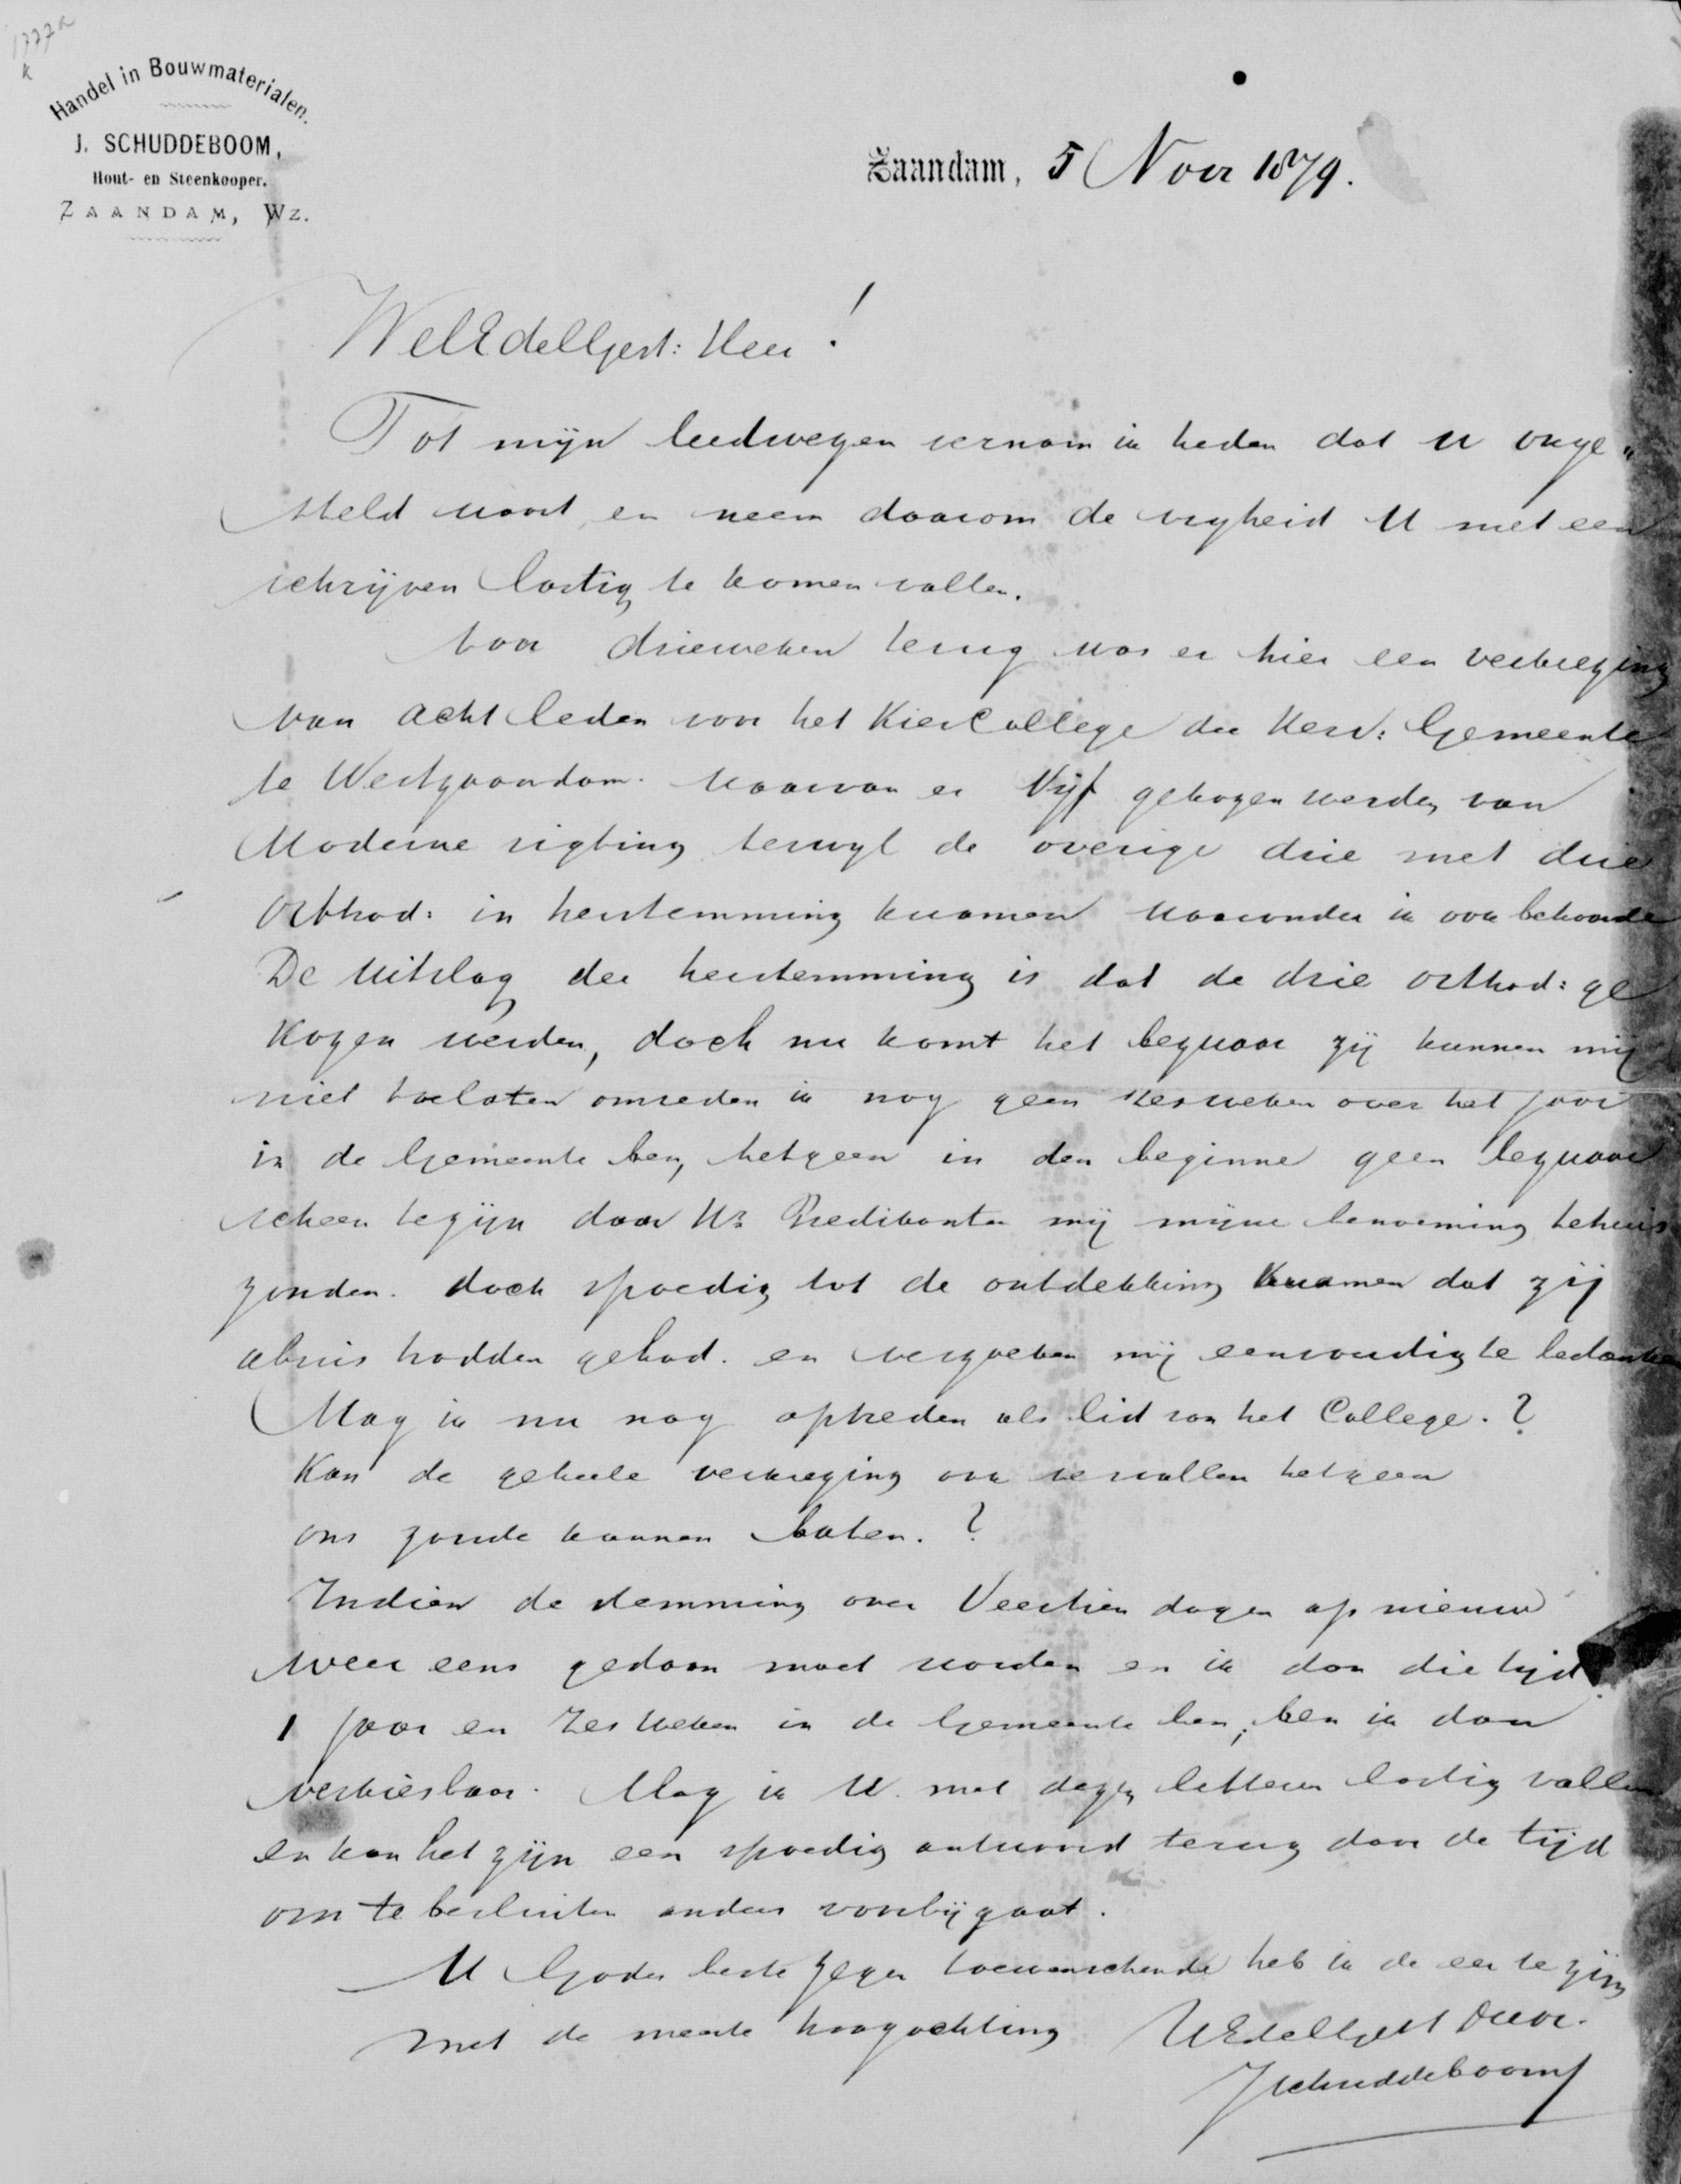 1777a
k
Handel in Bouwmaterialen.
J. SCHUDDEBOOM,
Hout- en Steenkooper.
ZAANDAM, Wz.
Zaandam, 5 Nover 1879.
WelEdelGest: Heer!
Tot mijn leedwezen vernam ik heden dat U onge„
steld waart, en neem daarom de vryheid U met een
schrijven lastig te komen vallen.
Voor drieweken terug was er hier een verkiezing
van acht leden voor het KiesCollege der Herv: Gemeente
te Westzaandam. Waarvan er Vijf gekozen werden van
Moderne rigting terwyl de overige drie met drie
Orthod: in herstemming kwamen waaronder ik ook behoorde
De Uitslag der herstemming is dat de drie orthod: ge
Kozen werden, doch nu komt het bezwaar zij kunnen mij
niet toelaten omreden ik nog geen zesweken over het jaar
in de Gemeente ben, hetgeen in den beginne geen bezwaar
scheen tezijn daar Hr. Predikanten mij mijne benoeming tehuis
zonden. doch spoedig tot de ontdekking kwamen dat zij
abuis hadden gehad. en verzoeken mij eenvoudig te bedanken
Mag ik nu nog optreden als lid van het College. ?
Kan de geheele verkiezing ook vervallen hetgeen
ons zoude kunnen baten. ?
Indien de stemming over Veertien dagen op nieuw
weer eens gedaan moet worden en ik dan die tijd
1 jaar en zes weken in de Gemeente ben, ben ik dan
verkiesbaar. Mag ik U. met dezen letteren lastig vallen
en kan het zijn een spoedig antwoord terug daar de tijd
om te besluiten anders voorbij gaat.
U Godes beste zegen toewenschende heb ik de eer te zijn
met de meeste hoogachting UEdelGest Dienr.
JSchuddeboom